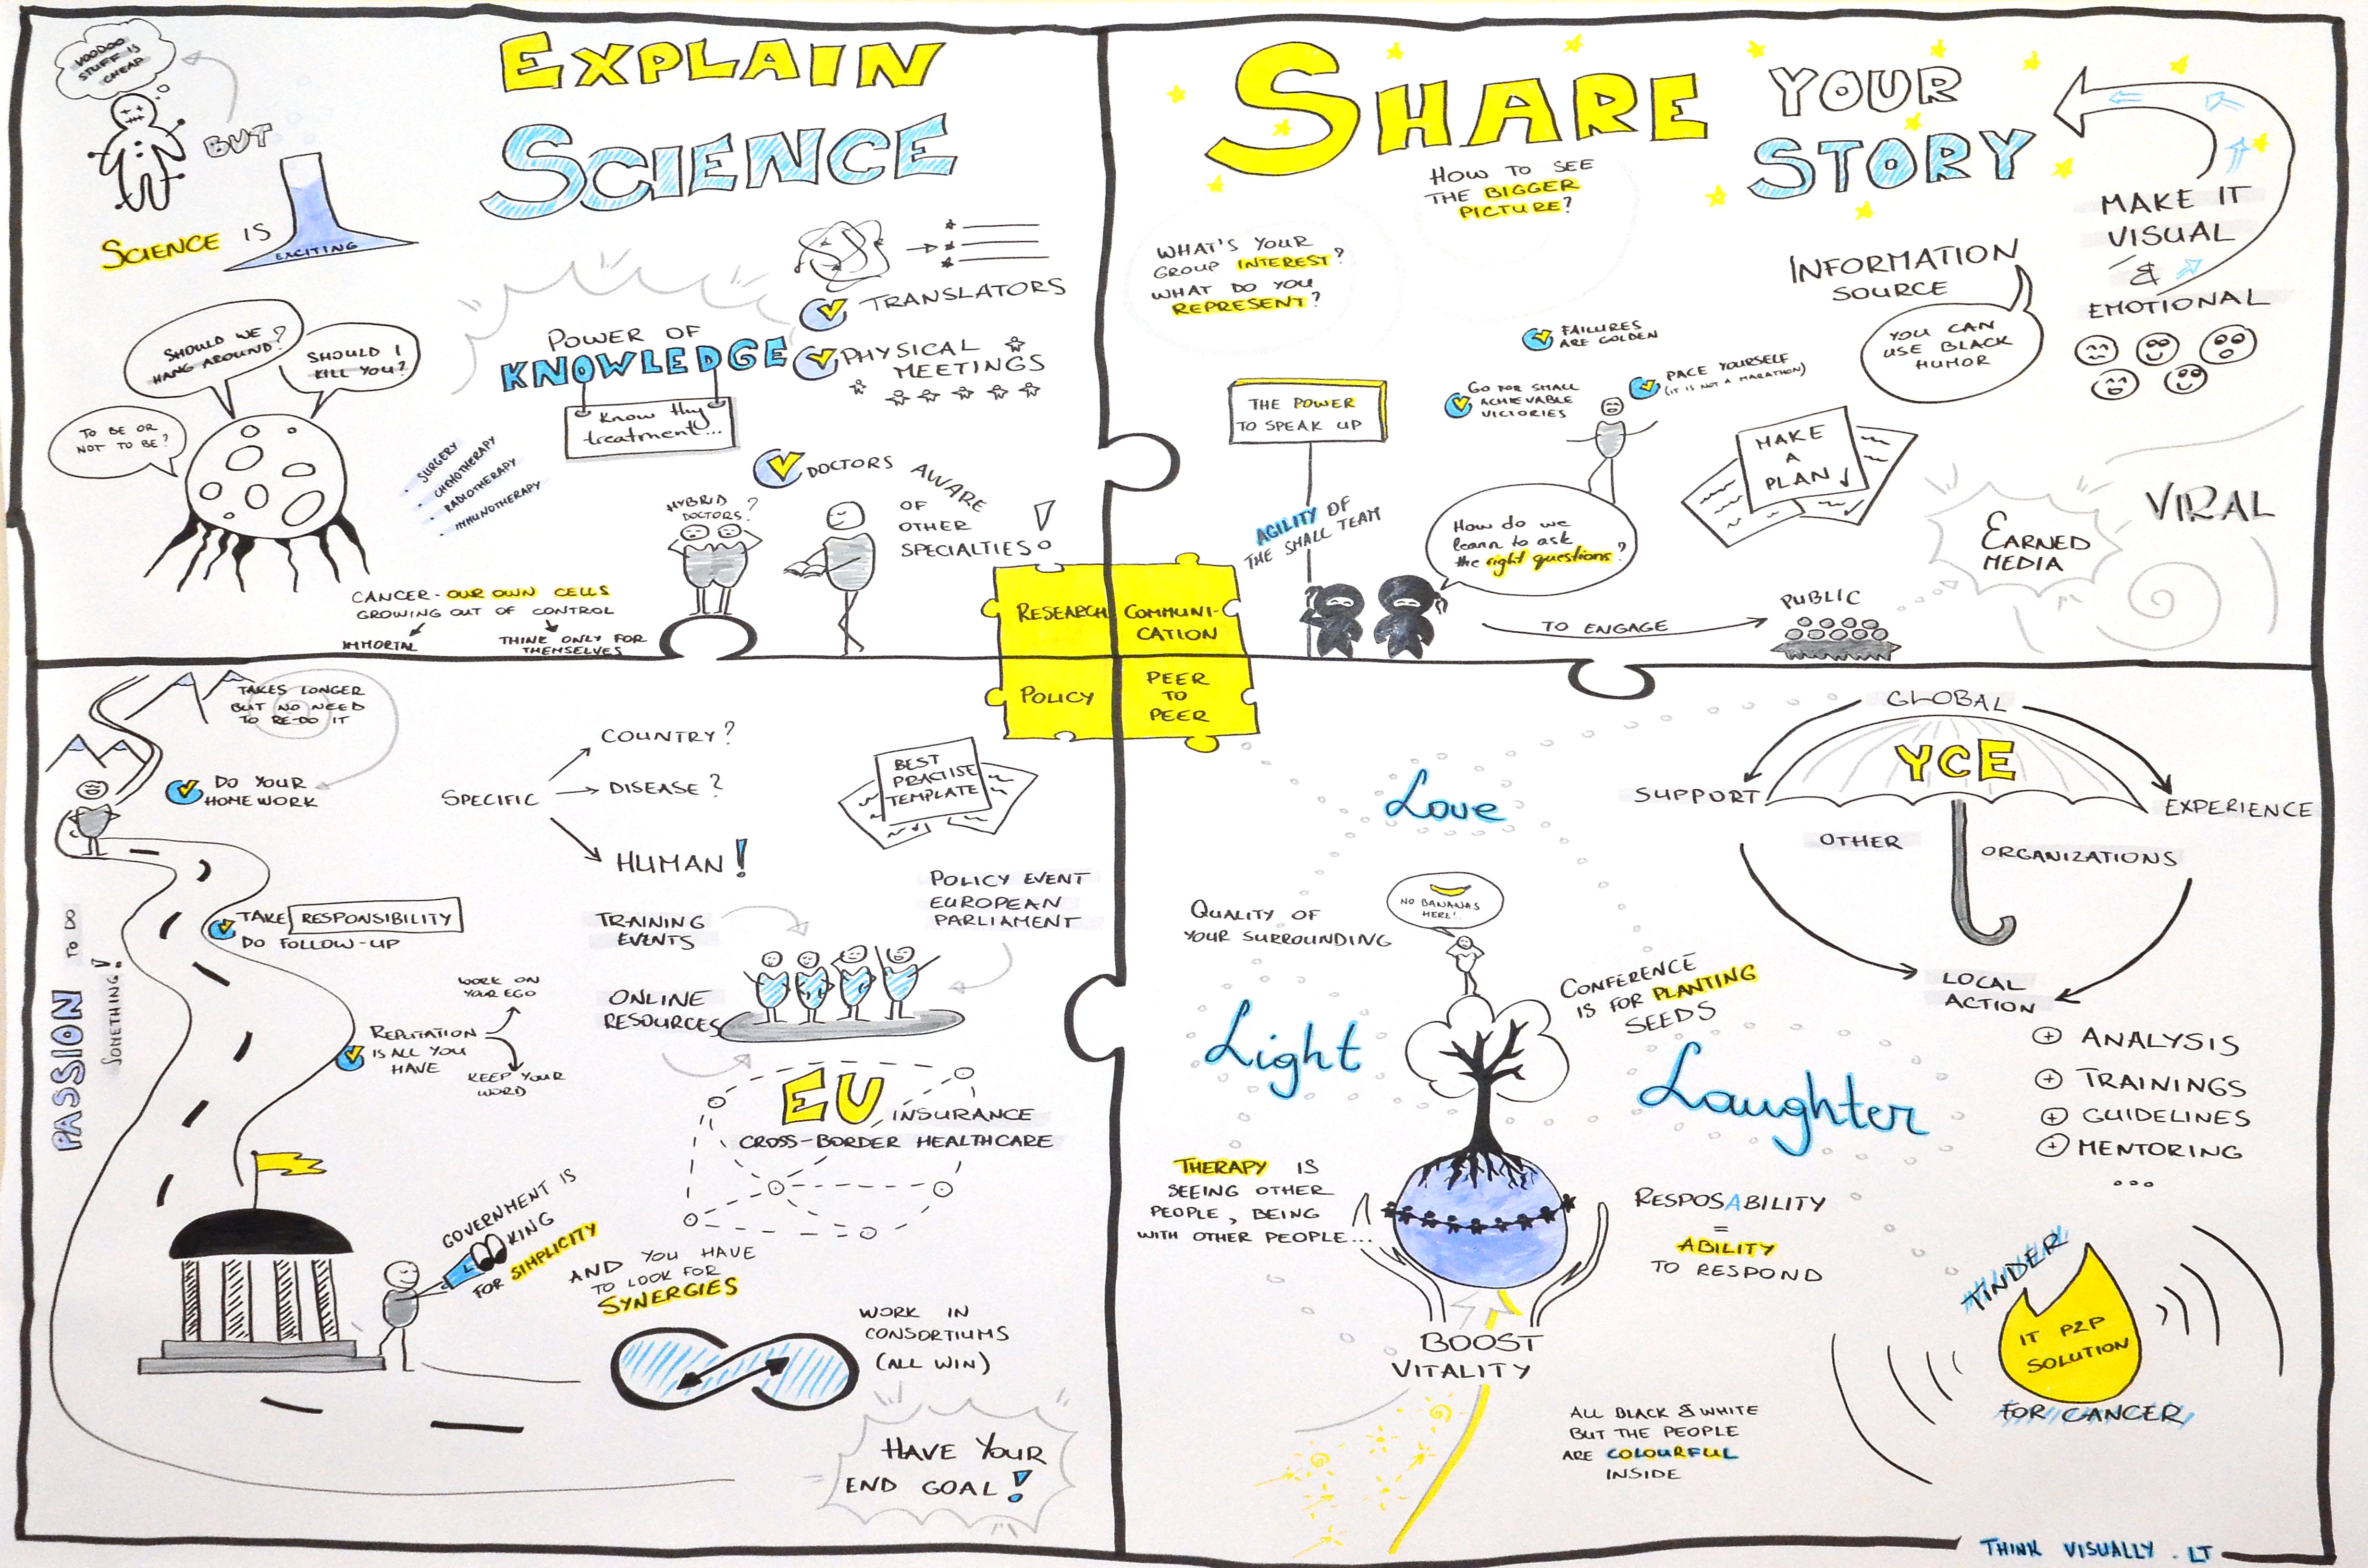 VOODOO
STUFF IS
CHEAP
BUT
SCIENCE IS
EXCITING
EXPLAIN
SCIENCE
TRANSLATORS
PHYSICAL
MEETINGS
POWER OF
KNOWLEDGE
Know thy
treatment...
SHOULD WE
HANG AROUND?
SHOULD I
KILL YOU?
TO BE OR
NOT TO BE?
• SURGERY
• CHEMOTHERAPY
• RADIOTHERAPY
• IMMUNOTHERAPY
HYBRID
DOCTORS?
DOCTORS AWARE
OF
OTHER
SPECIALTIES!
CANCER - OUR OWN CELLS
GROWING OUT OF CONTROL
IMMORTAL
THINK ONLY FOR
THEMSELVES
SHARE YOUR
STORY
HOW TO SEE
THE BIGGER
PICTURE?
WHAT'S YOUR
GROUP INTEREST?
WHAT DO YOU
REPRESENT?
MAKE IT
VISUAL
&
EMOTIONAL
INFORMATION
SOURCE
YOU CAN
USE BLACK
HUMOR
FAILURES
ARE GOLDEN
GO FOR SMALL
ACHIEVABLE
VICTORIES
PACE YOURSELF
(IT IS NOT A MARATHON)
THE POWER
TO SPEAK UP
MAKE
A
PLAN
AGILITY OF
THE SMALL TEAM
How do we
learn to ask
the right questions?
TO ENGAGE
PUBLIC
EARNED
MEDIA
VIRAL
RESEARCH
COMMUNI-
CATION
POLICY
PEER
TO
PEER
TAKES LONGER
BUT NO NEED
TO RE-DO IT
DO YOUR
HOMEWORK
SPECIFIC
COUNTRY?
DISEASE?
HUMAN!
BEST
PRACTISE
TEMPLATE
TAKE RESPONSIBILITY
DO FOLLOW-UP
PASSION TO DO
SOMETHING!
WORK ON
YOUR EGO
REPUTATION
IS ALL YOU
HAVE
KEEP YOUR
WORD
TRAINING
EVENTS
POLICY EVENT
EUROPEAN
PARLIAMENT
ONLINE
RESOURCES
EU INSURANCE
CROSS-BORDER HEALTHCARE
GOVERNMENT IS
LOOKING
FOR SIMPLICITY
AND YOU HAVE
TO LOOK FOR
SYNERGIES
WORK IN
CONSORTIUMS
(ALL WIN)
HAVE YOUR
END GOAL!
Love
Light
Laughter
GLOBAL
YCE
SUPPORT
EXPERIENCE
OTHER
ORGANIZATIONS
LOCAL
ACTION
+ ANALYSIS
+ TRAININGS
+ GUIDELINES
+ MENTORING
...
QUALITY OF
YOUR SURROUNDING
NO BANANAS
HERE!
CONFERENCE
IS FOR PLANTING
SEEDS
THERAPY IS
SEEING OTHER
PEOPLE, BEING
WITH OTHER PEOPLE...
RESPOSABILITY
=
ABILITY
TO RESPOND
BOOST
VITALITY
TINDER
IT P2P
SOLUTION
FOR CANCER
ALL BLACK & WHITE
BUT THE PEOPLE
ARE COLOURFUL
INSIDE
THINK VISUALLY.LT